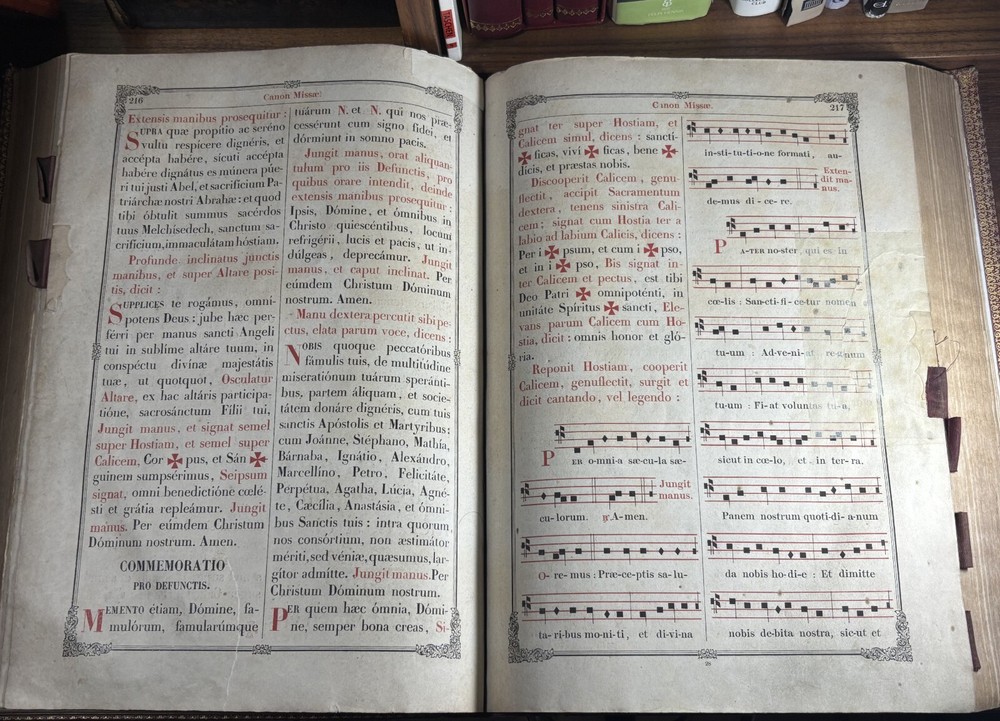 216
Canon Missæ.
Extensis manibus prosequitur :
SUPRA quæ propitio ac seréno
vultu respícere dignéris, et
accépta habére, sicuti accépta
habére dignátus es múnera púe-
ri tui justi Abel, et sacrifícium Pa-
triárchæ nostri Abrahæ : et quod
tibi óbtulit summus sacérdos
tuus Melchísedech, sanctum sa-
crifícium, immaculátam hóstiam.
Profunde inclinatus junctis
manibus, et super Altare posi-
tis, dicit :
SUPPLICES te rogámus, omni-
potens Deus : jube hæc per-
férri per manus sancti Angeli
tui in sublíme altáre tuum, in
conspéctu divínæ majestátis
tuæ, ut quotquot, Osculatur
Altare, ex hac altáris participa-
tióne, sacrosánctum Fílii tui,
Jungit manus, et signat semel
super Hostiam, et semel super
Calicem, Cor ✠ pus, et Sán ✠
guinem sumpsérimus, Seipsum
signat, omni benedictióne cœlé-
sti et grátia repleámur. Jungit
manus. Per eúmdem Christum
Dóminum nostrum. Amen.
COMMEMORATIO
PRO DEFUNCTIS.
MEMENTO étiam, Dómine, fa-
mulórum, famularúmque
tuárum N. et N. qui nos præ-
cessérunt cum signo fídei, et
dórmiunt in somno pacis.
Jungit manus, orat aliquan-
tulum pro iis Defunctis, pro
quibus orare intendit, deinde
extensis manibus prosequitur :
Ipsis, Dómine, et ómnibus in
Christo quiescéntibus, locum
refrigérii, lucis et pacis, ut in-
dúlgeas, deprecámur. Jungit
manus, et caput inclinat. Per
eúmdem Christum Dóminum
nostrum. Amen.
Manu dextera percutit sibi pe-
ctus, elata parum voce, dicens :
NOBIS quoque peccatóribus
fámulis tuis, de multitúdine
miseratiónum tuárum speránti-
bus, partem áliquam, et socie-
tátem donáre dignéris, cum tuis
sanctis Apóstolis et Martyribus:
cum Joánne, Stéphano, Mathía,
Bárnaba, Ignátio, Alexándro,
Marcellíno, Petro, Felicitáte,
Perpétua, Agatha, Lúcia, Agné-
te, Cæcília, Anastásia, et ómni-
bus Sanctis tuis : intra quorum
nos consórtium, non æstimátor
mériti, sed véniæ, quæsumus, lar-
gítor admítte. Jungit manus. Per
Christum Dóminum nostrum.
PER quem hæc ómnia, Dómi-
ne, semper bona creas, Si-
Canon Missæ.
217
gnat ter super Hostiam, et
Calicem simul, dicens : sancti-
✠ ficas, viví ✠ ficas, bene ✠
dícis, et præstas nobis.
Discooperit Calicem, genu-
flectit, accipit Sacramentum
dextera, tenens sinistra Cali-
cem ; signat cum Hostia ter a
labio ad labium Calicis, dicens :
Per i ✠ psum, et cum i ✠ pso,
et in i ✠ pso, Bis signat in-
ter Calicem et pectus, est tibi
Deo Patri ✠ omnipoténti, in
unitáte Spíritus ✠ sancti, Ele-
vans parum Calicem cum Ho-
stia, dicit : omnis honor et gló-
ria.
Reponit Hostiam, cooperit
Calicem, genuflectit, surgit et
dicit cantando, vel legendo :
PER o-mni-a sæ-cu-la sæ-
cu-lorum. ℟ A-men.
Jungit
manus.
O- re-mus : Præ-ce-ptis sa-lu-
ta-ri-bus mo-ni-ti, et di-vi-na
in-sti-tu-ti-o-ne formati, au-
demus di-ce-re.
Exten-
dit ma-
nus.
PATER no-ster, qui es in
cœ-lis : San-cti-fi-ce-tur nomen
tu-um : Ad-ve-ni-at re-gnum
tu-um : Fi-at voluntas tu-a,
sicut in cœ-lo, et in ter-ra.
Panem nostrum quoti-di-a-num
da nobis ho-di-e : Et dimitte
nobis de-bita nostra, sic-ut et
28
TASCHEN